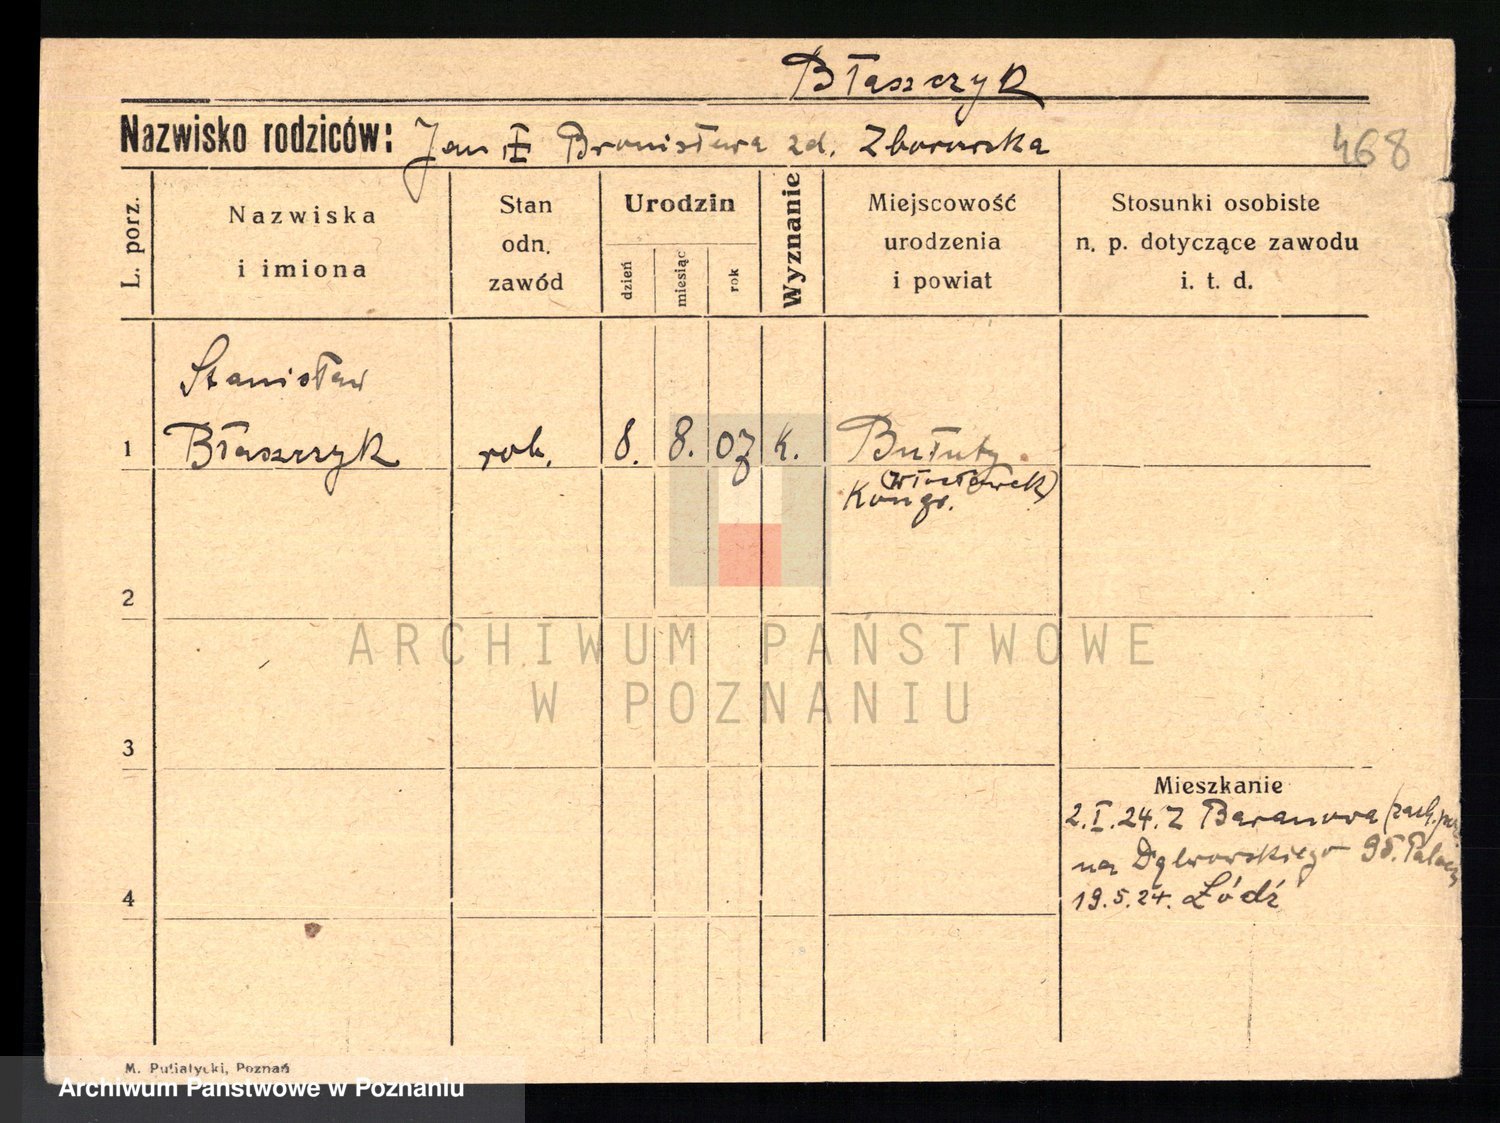 Błaszczyk
Nazwisko rodziców: Jan Bronisława zd. Zborowska
468
L. porz.
Nazwiska
i imiona
Stan
odn.
zawód
Urodzin
dzień
miesiąc
rok
Wyznanie
Miejscowość
urodzenia
i powiat
Stosunki osobiste
n. p. dotyczące zawodu
i. t. d.
Stanisław
1 Błaszczyk rob. 8. 8. 07 k.
(Włocławek)
Kongr.
2
3
4
Mieszkanie
2.I.24. Z Baranowa
na Dąbrowskiego
19.5.24. Łódź
M. Putiatycki, Poznań
ARCHIWUM PAŃSTWOWE
W POZNANIU
Archiwum Państwowe w Poznaniu